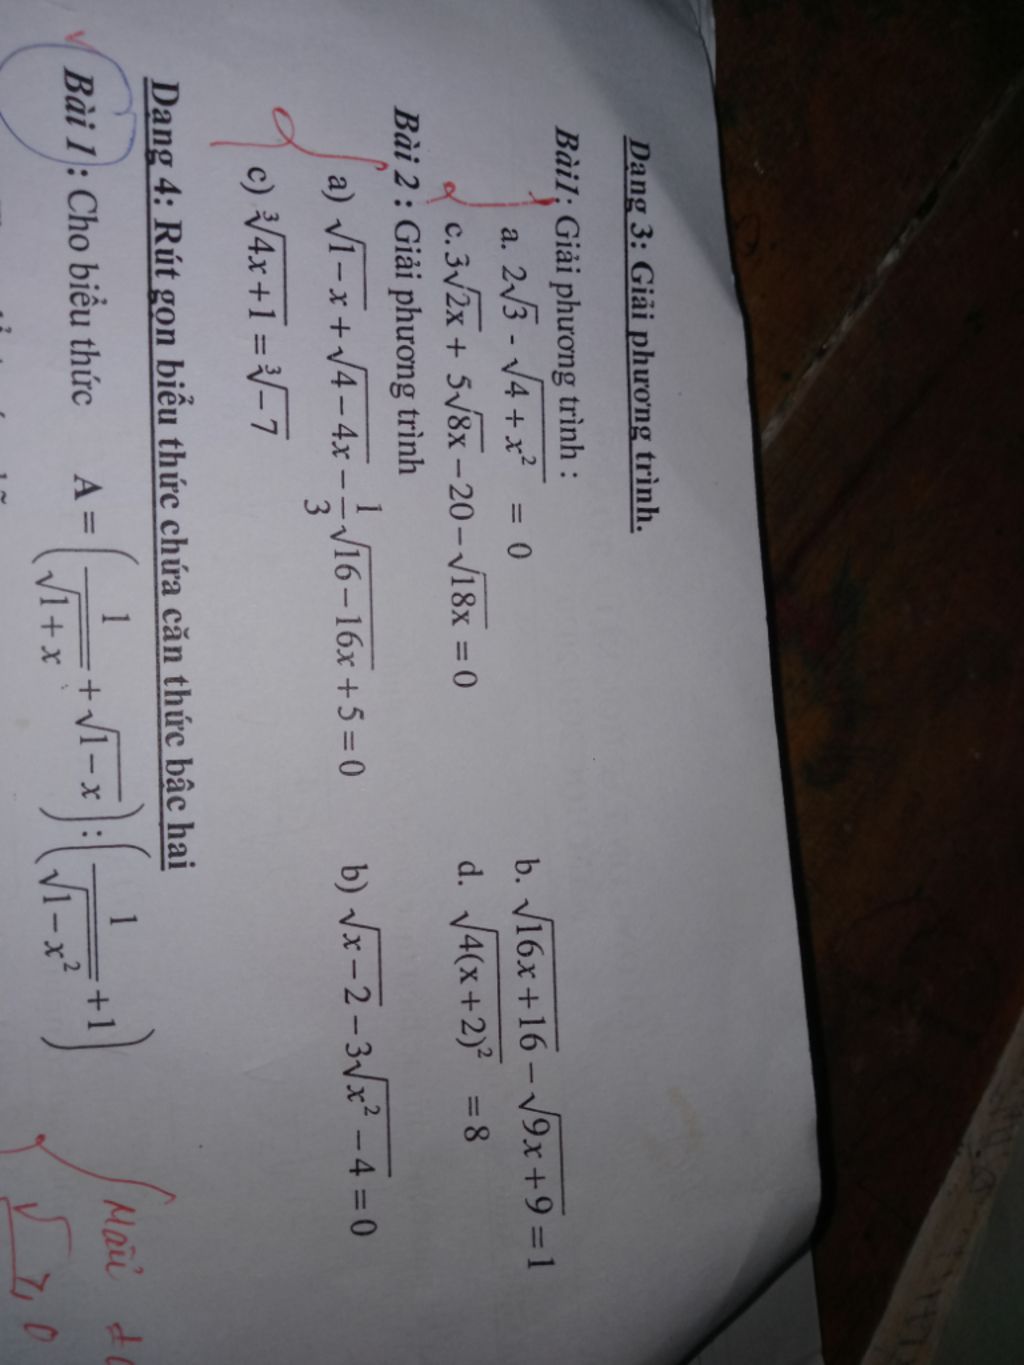 Dạng 3: Giải phương trình.
Bài1: Giải phương trình :
a. 2√3 - √(4 + x²) = 0 b. √(16x + 16) − √(9x + 9) = 1
c. 3√2x + 5√8x − 20 − √18x = 0 d. √(4(x + 2)²) = 8
Bài 2 : Giải phương trình
a) √(1 − x) + √(4 − 4x) − 1/3 √(16 − 16x) + 5 = 0 b) √(x − 2) − 3√(x² − 4) = 0
c) ∛(4x + 1) = ∛(−7)
Dạng 4: Rút gọn biểu thức chứa căn thức bậc hai
Bài 1 : Cho biểu thức A = (1/√(1 + x) + √(1 − x)) : (1/√(1 − x²) + 1)
Mẫu
√ 0